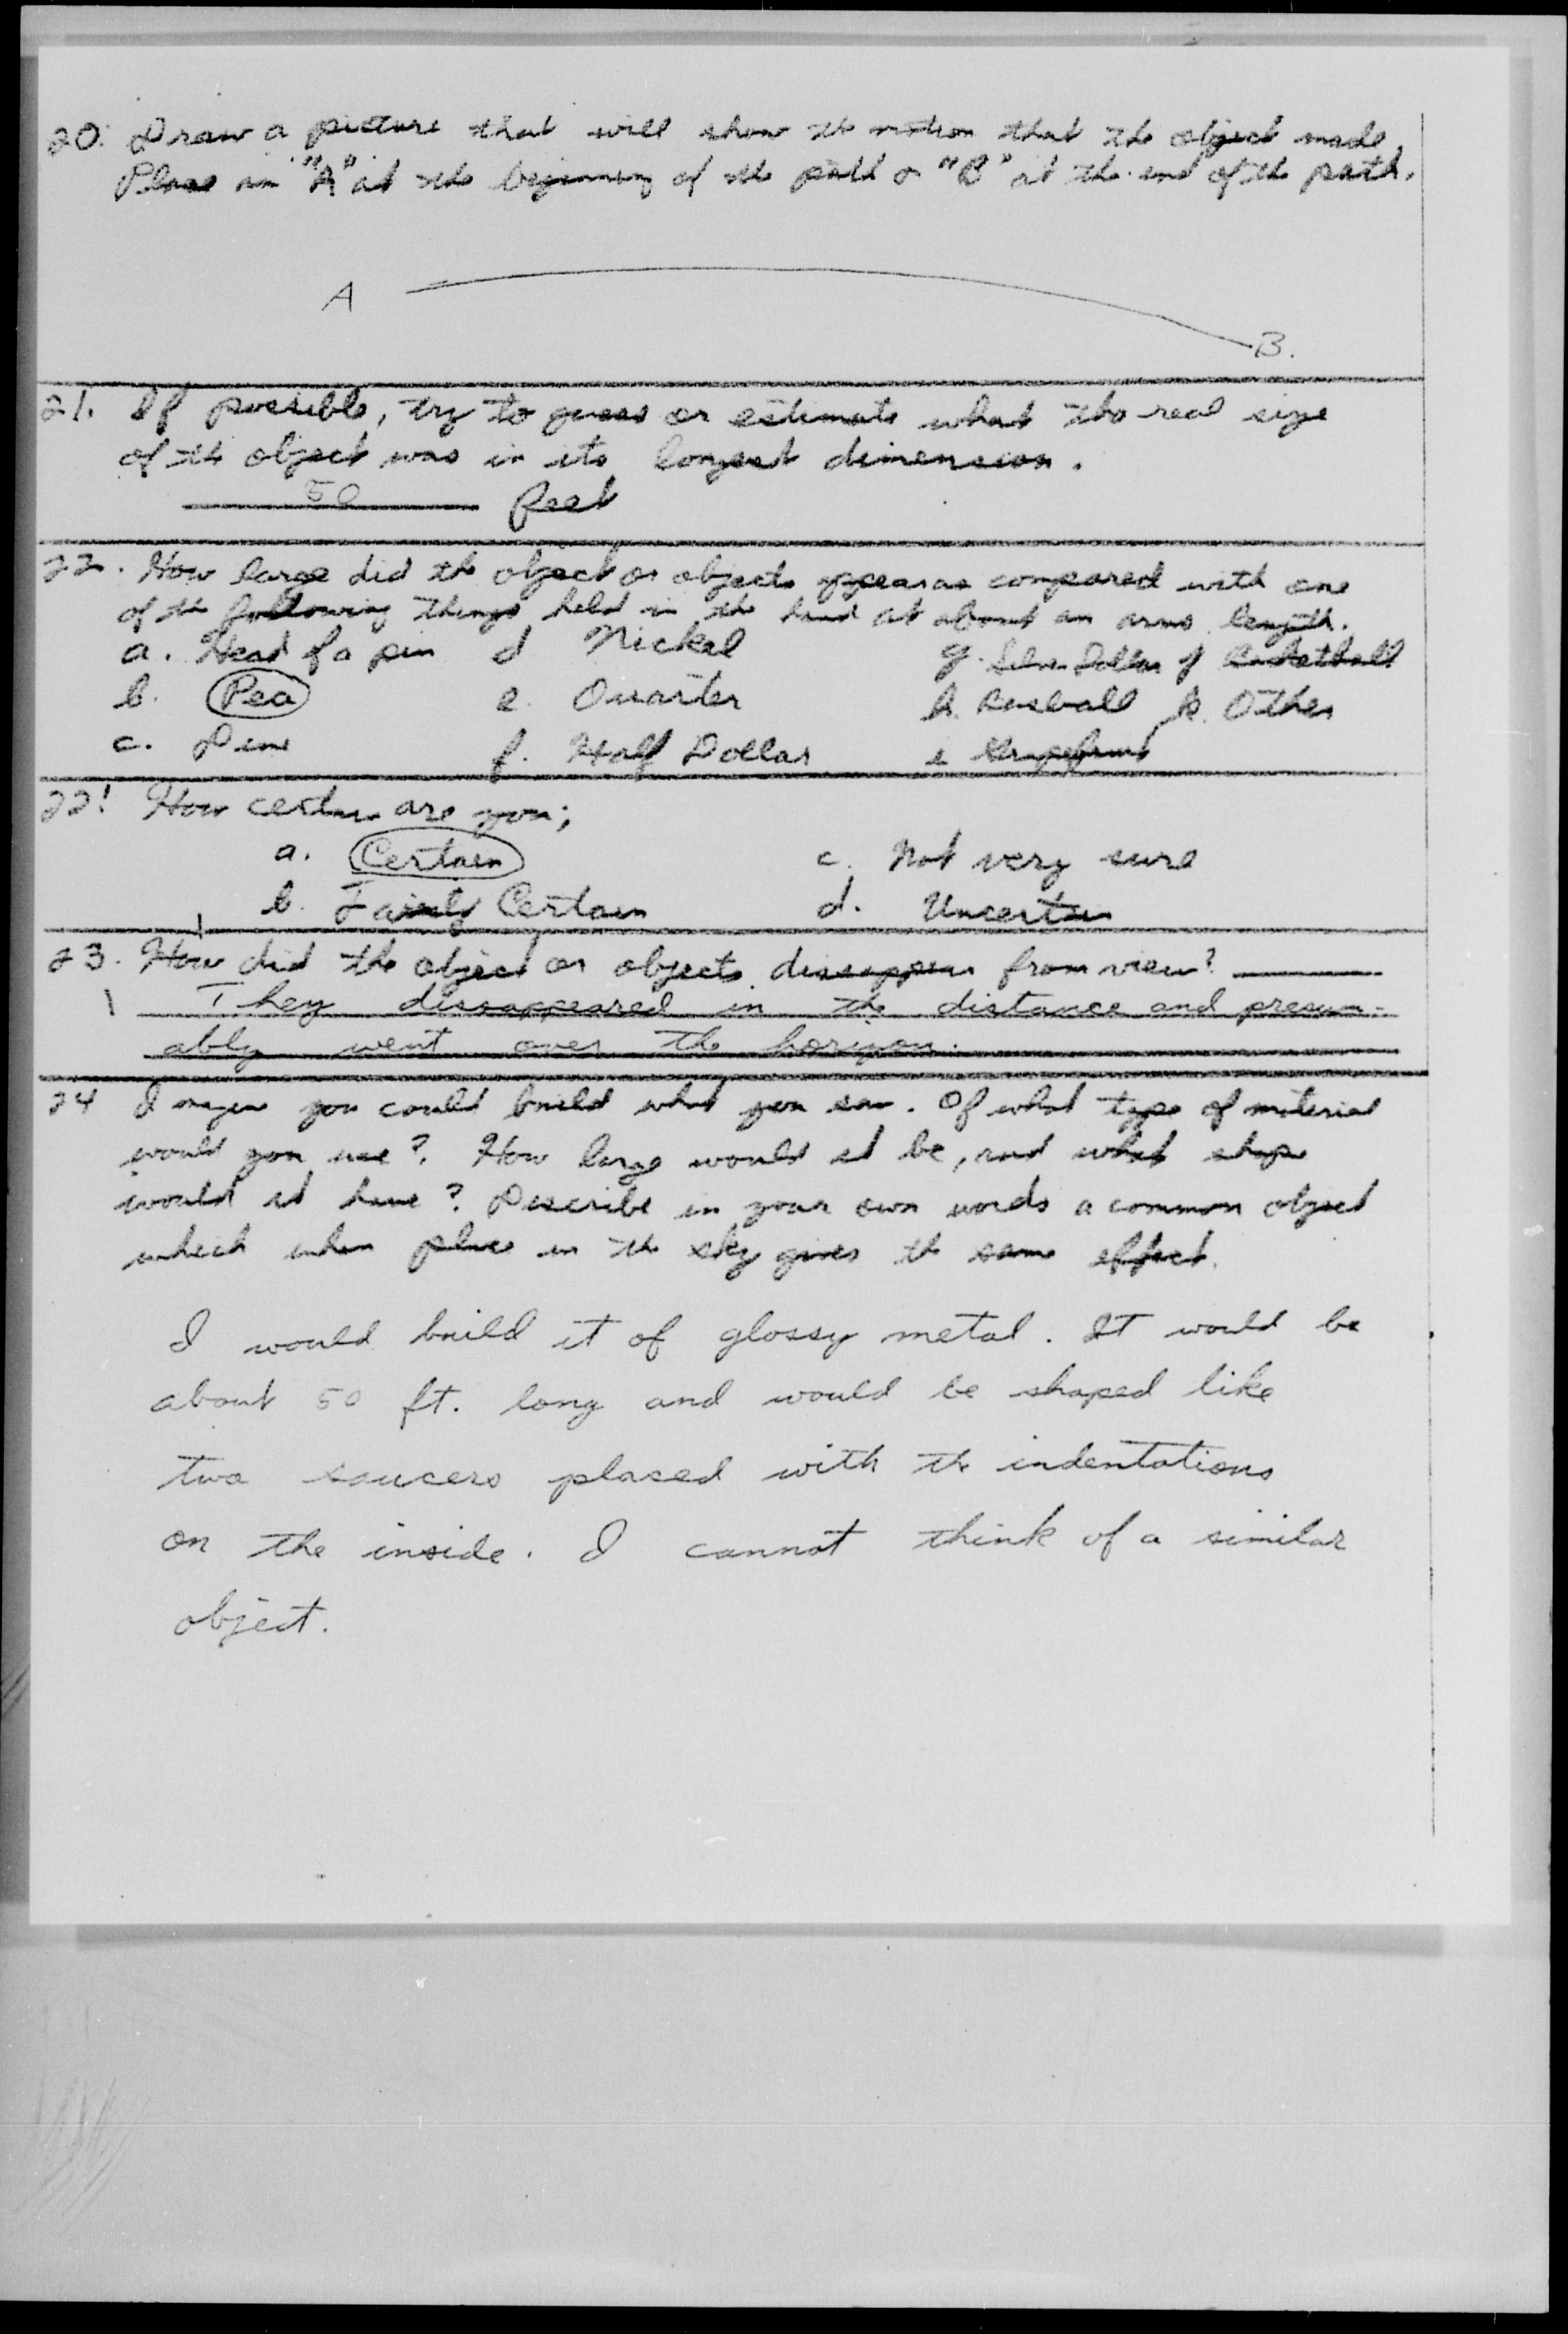 20. Draw a picture that will show the motion that the object made
Place an "A" at the beginning of the path a "B" at the end of the path.
A
B.
21. If possible, try to guess or estimate what the real size
of the object was in its longest dimension.
50 feet
22. How large did the object or objects appear as compared with one
of the following things held in the hand at about an arms length.
a. Head of a pin d Nickel g. Silver Dollar j Basketball
b. Pea e. Quarter h. Baseball k. Other
c. Dime f. Half Dollar i Grapefruit
22! How certain are you;
a. Certain c. Not very sure
b. Fairly Certain d. Uncertain
23. How did the object or objects dissappear from view?
They dissappeared in the distance and presum-
ably went over the horizon.
24 Imagine you could build what you saw. Of what type of material
would you use? How large would it be, and what shape
would it have? Describe in your own words a common object
which when place in the sky gives the same effect.
I would build it of glossy metal. It would be
about 50 ft. long and would be shaped like
two saucers placed with the indentations
on the inside. I cannot think of a similar
object.